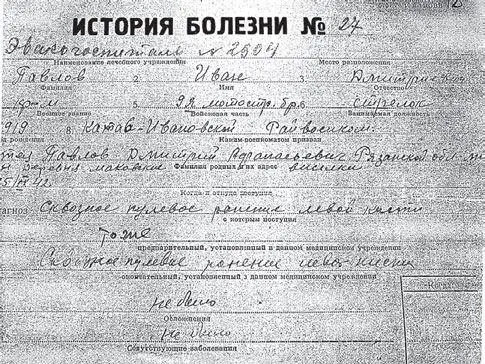 ИСТОРИЯ БОЛЕЗНИ № 27
Эвакогоспиталь № 2904
Наименование лечебного учреждения Место расположения
Павлов 2. Иван 3. Дмитриевич
Фамилия Имя Отчество
5. 92 мотостр. бр. 6. стрелок
Военное звание Войсковая часть Занимаемая должность
1919 8. Катав-Ивановский Райвоенком.
рождения Каким военкоматом призван
Павлов Дмитрий Рязанской обл.
деревня
Фамилия родных и их адрес
Когда и откуда поступил
Сквозное пулевое ранение левой кисти
с которым поступил
то же
предварительный, установленный в данном медицинском учреждении
Сквозное пулевое ранение левой кисти
окончательный, установленный в данном медицинском учреждении
не было
Осложнения
не было
Сопутствующие заболевания